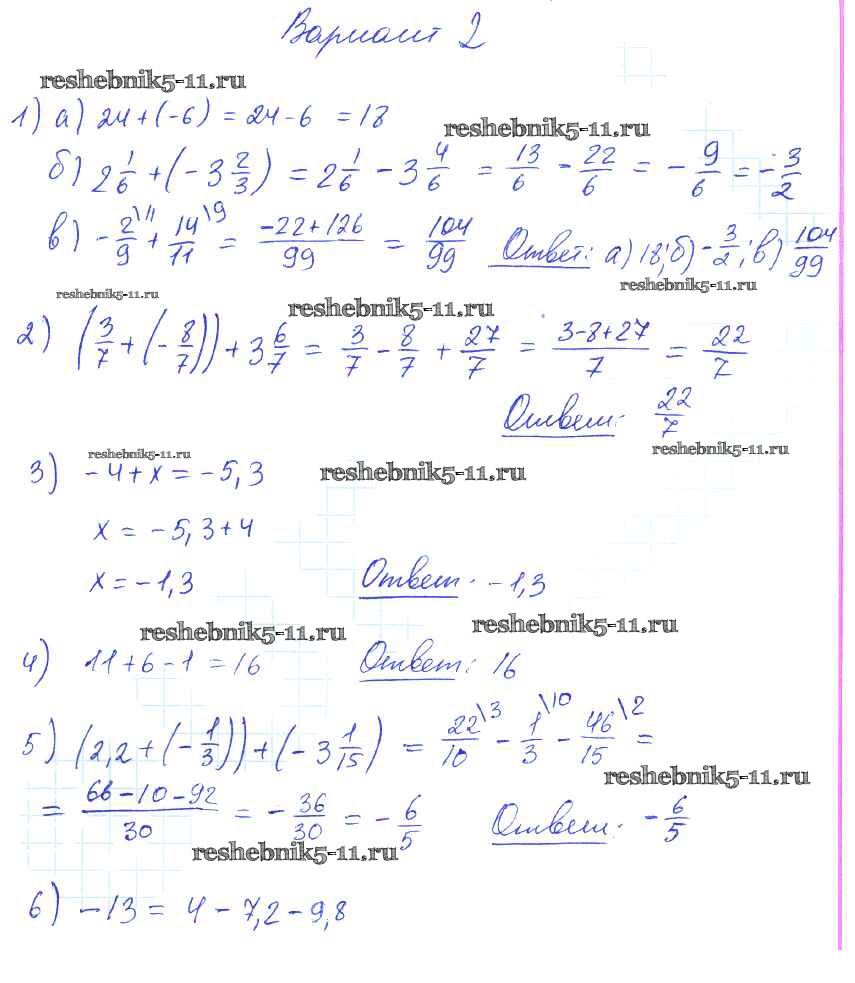 Вариант 2
reshebnik5-11.ru
1) а) 24+(-6) = 24-6 = 18
reshebnik5-11.ru
б) 2 1/6 + (-3 2/3) = 2 1/6 - 3 4/6 = 13/6 - 22/6 = - 9/6 = - 3/2
в) - 2/9 \11 + 14/11 \9 = (-22+126)/99 = 104/99 Ответ: а) 18; б) - 3/2; в) 104/99
reshebnik5-11.ru
reshebnik5-11.ru
reshebnik5-11.ru
2) (3/7 + (- 8/7)) + 3 6/7 = 3/7 - 8/7 + 27/7 = (3-8+27)/7 = 22/7
Ответ: 22/7
reshebnik5-11.ru
reshebnik5-11.ru
reshebnik5-11.ru
3) -4+x = -5,3
x = -5,3+4
x = -1,3 Ответ: -1,3
reshebnik5-11.ru
reshebnik5-11.ru
4) 11+6-1 = 16 Ответ: 16
5) (2,2 + (- 1/3)) + (-3 1/15) = 22/10 \3 - 1/3 \10 - 46/15 \2 =
reshebnik5-11.ru
= (66-10-92)/30 = - 36/30 = - 6/5 Ответ: - 6/5
reshebnik5-11.ru
6) -13 = 4 - 7,2 - 9,8